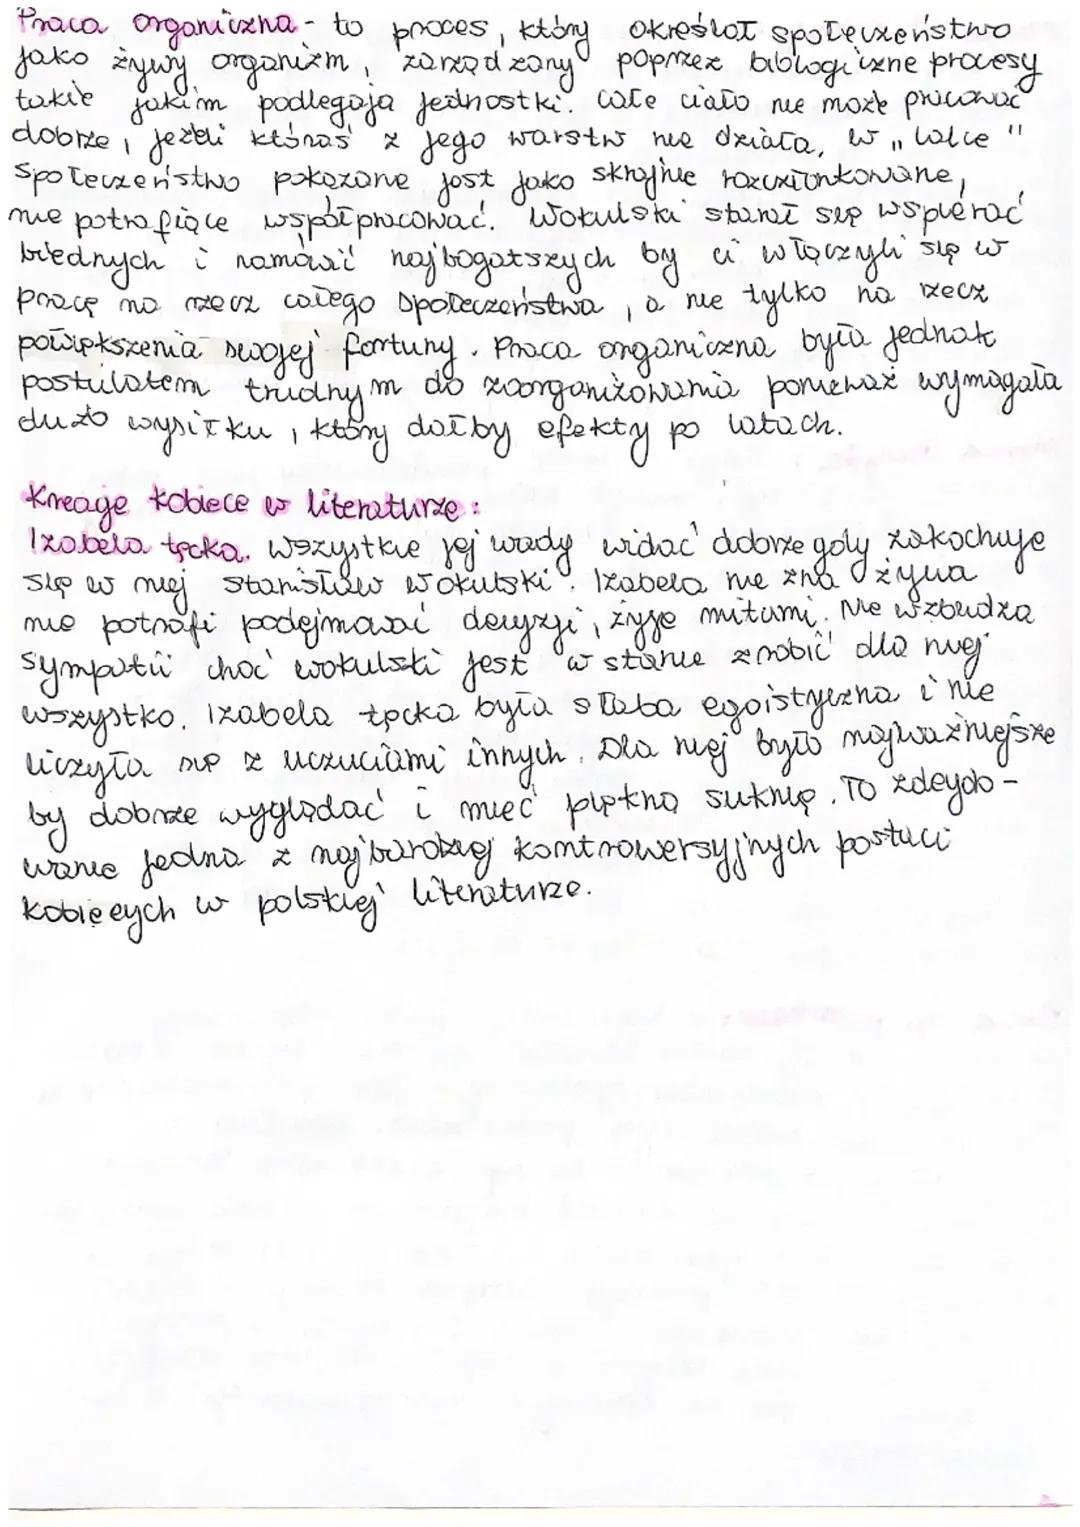 Praca organiczna - to proces, który określał społeczeństwo
jako żywy organizm, zarządzany poprzez biologiczne procesy
takie jakim podlegają jednostki. Całe ciało nie może pracować
dobrze, jeżeli któraś z jego warstw nie działa, w „Lalce"
społeczeństwo pokazane jest jako skrajnie rozczłonkowane,
nie potrafiące współpracować. Wokulski starał się wspierać
biednych i namówić najbogatszych by ci włączyli się w
pracę na rzecz całego społeczeństwa, a nie tylko na rzecz
powiększenia swojej fortuny. Praca organiczna była jednak
postulatem trudnym do zoorganizowania ponieważ wymagała
dużo wysiłku, który dałby efekty po latach.
Kreacje kobiece w literaturze:
Izabela Łęcka. Wszystkie jej wady widać dobrze gdy zakochuje
się w niej Stanisław Wokulski. Izabela nie zna życia
nie potrafi podejmować decyzji, żyje mitami. Nie wzbudza
sympatii choć Wokulski jest w stanie zrobić dla niej
wszystko. Izabela Łęcka była słaba egoistyczna i nie
liczyła się z uczuciami innych. Dla niej było najważniejsze
by dobrze wyglądać i mieć piękną suknię. To zdecydo-
wanie jedna z najbardziej kontrowersyjnych postaci
kobiecych w polskiej literaturze.